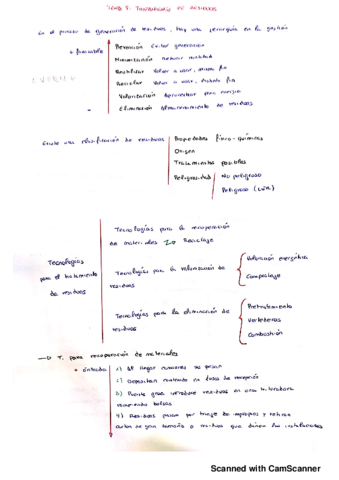 TEMA 8. TRATAMIENTO DE RESIDUOS
En el proceso de generación de residuos, hay una jerarquía en la gestión
+ favorable
Prevención Evitar generación
Minimización Reducir cantidad
Reutilizar Volver a usar, mismo fin
Reciclar Volver a usar, distinto fin
Valorización Aprovechar para energía
Eliminación Almacenamiento de residuos
Existe una clasificación de residuos
Propiedades físico-químicas
Origen
Tratamientos posibles
Peligrosidad
No peligroso
Peligroso
Tecnologías
para el tratamiento
de residuos
Tecnologías para la recuperación
de materiales Reciclaje
Tecnologías para la valorización de
residuos
Valorización energética
Compostaje
Tecnologías para la eliminación de
residuos
Pretratamiento
Vertederos
Combustión
T. para recuperación de materiales
Entrada
1) Al llegar camiones se pesan
2) Depositan contenido en fosa de recepción
3) Puente grúa introduce residuos en una
rompiendo bolsas
4) Residuos pasan por triaje de impropios y retiran
de gran tamaño o residuos que dañen las instalaciones
Scanned with CamScanner